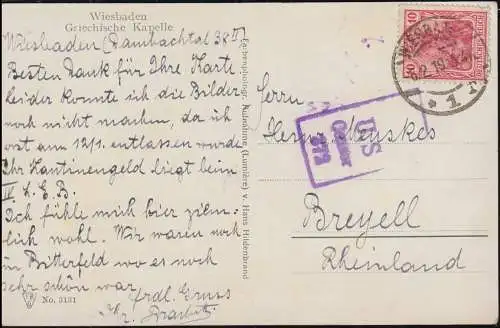 Wiesbaden
Griechische Kapelle
Wiesbaden (Dambachtal 38 II)
Besten Dank für Ihre Karte
leider konnte ich die Bilder
noch nicht machen, da ich
erst am 12/1. entlassen wurde
Ihr Kantinengeld liegt beim
IV. L.E.B.
Ich fühle mich hier ziem-
lich wohl. Wir waren noch
in Bitterfeld wo es noch
sehr schön war.
frdl. Gruss
No. 3131
Farbenphotogr. Aufnahme (Lumière) v. Hans Hildenbrand
WIESBADEN
1
10
DEUTSCHES REICH
US
Censor
Herrn
Breyell
Rheinland